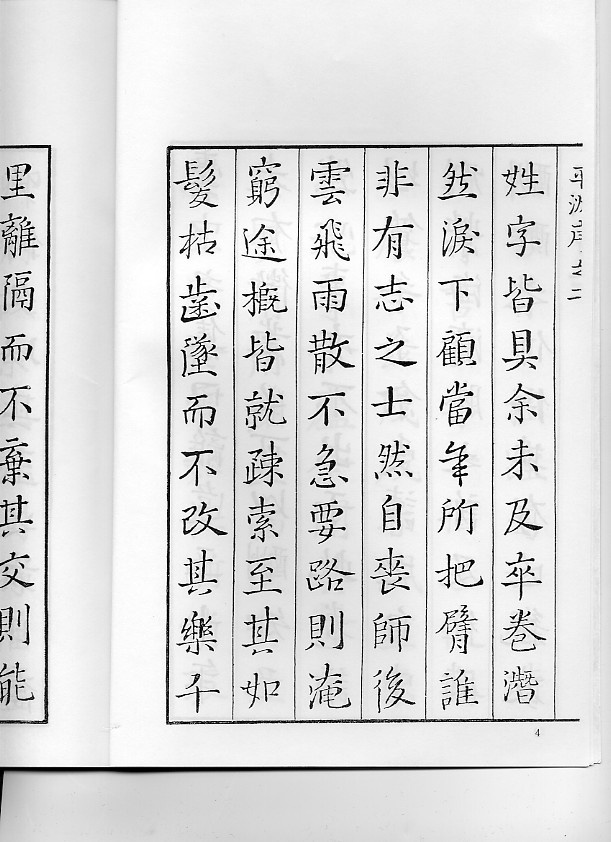 姓字皆具余未及卒卷潛
然淚下顧當年所把臂誰
非有志之士然自喪師後
雲飛雨散不急要路則淹
窮途概皆就疎索至其如
髮枯齒墜而不改其樂千
里離隔而不棄其交則能
4